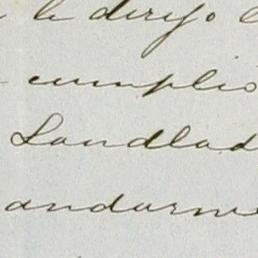 le dirijo
cumplio
Landlad
andarme